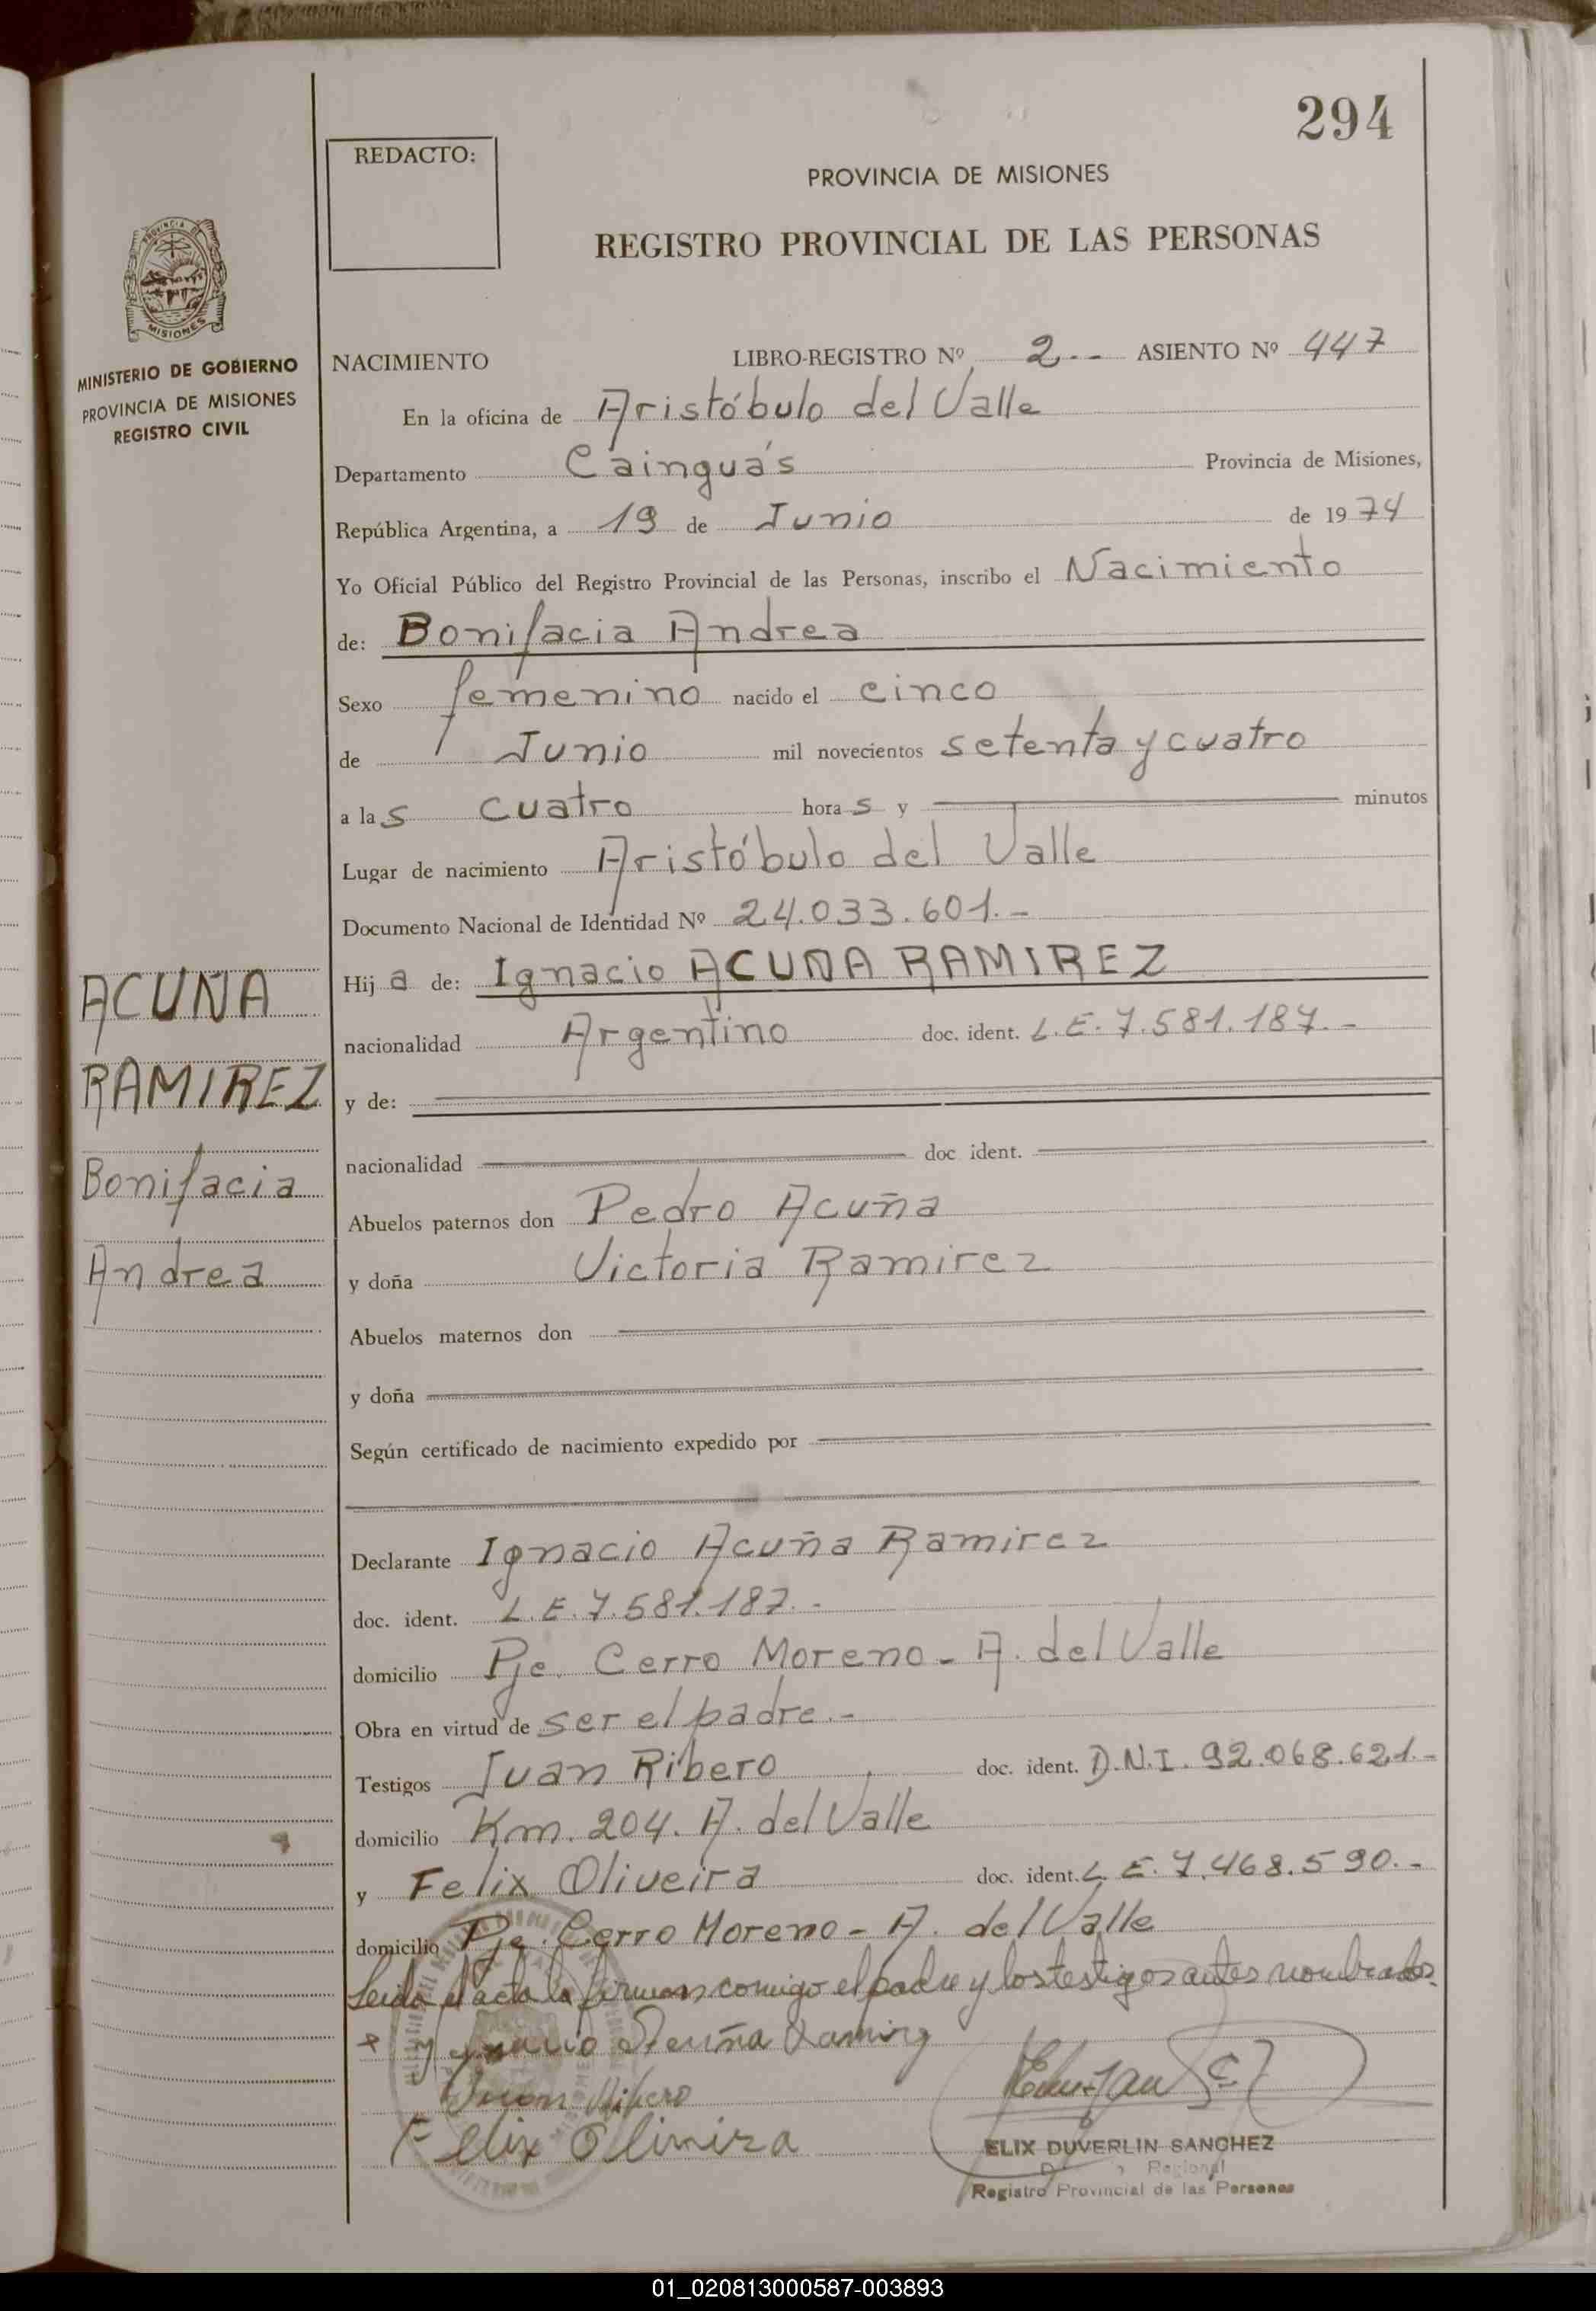 294
REDACTO:
PROVINCIA DE MISIONES
REGISTRO PROVINCIAL DE LAS PERSONAS
PROVINCIA DE
MISIONES
MINISTERIO DE GOBIERNO
PROVINCIA DE MISIONES
REGISTRO CIVIL
NACIMIENTO LIBRO-REGISTRO Nº 2.-- ASIENTO Nº 447
En la oficina de Aristóbulo del Valle
Departamento Cainguás Provincia de Misiones,
República Argentina, a 19 de Junio de 1974
Yo Oficial Público del Registro Provincial de las Personas, inscribo el Nacimiento
de: Bonifacia Andrea
Sexo femenino nacido el cinco
de Junio mil novecientos setenta y cuatro
a las cuatro horas y minutos
Lugar de nacimiento Aristóbulo del Valle
Documento Nacional de Identidad Nº 24.033.601.-
Hija de: Ignacio ACUÑA RAMIREZ
nacionalidad Argentino doc. ident. L.E. 7.581.187.-
y de:
nacionalidad doc ident.
Abuelos paternos don Pedro Acuña
y doña Victoria Ramirez
Abuelos maternos don
y doña
Según certificado de nacimiento expedido por
Declarante Ignacio Acuña Ramirez
doc. ident. L.E. 7.581.187.-
domicilio Pje. Cerro Moreno - A. del Valle
Obra en virtud de ser el padre.-
Testigos Juan Ribero doc. ident. D.N.I. 92.068.621.-
domicilio Km. 204. A. del Valle
y Felix Oliveira doc. ident. L.E. 7.468.590.-
domicilio Pje. Cerro Moreno - A. del Valle
Leida el acta la firman comigo el padre y los testigos antes nombrados.
Ygnacio Acuña Ramirez
Juan Ribero
Felix Olivira
ELIX DUVERLIN SANCHEZ
Regional
Registro Provincial de las Personas
ACUÑA
RAMIREZ
Bonifacia
Andrea
01_020813000587-003893